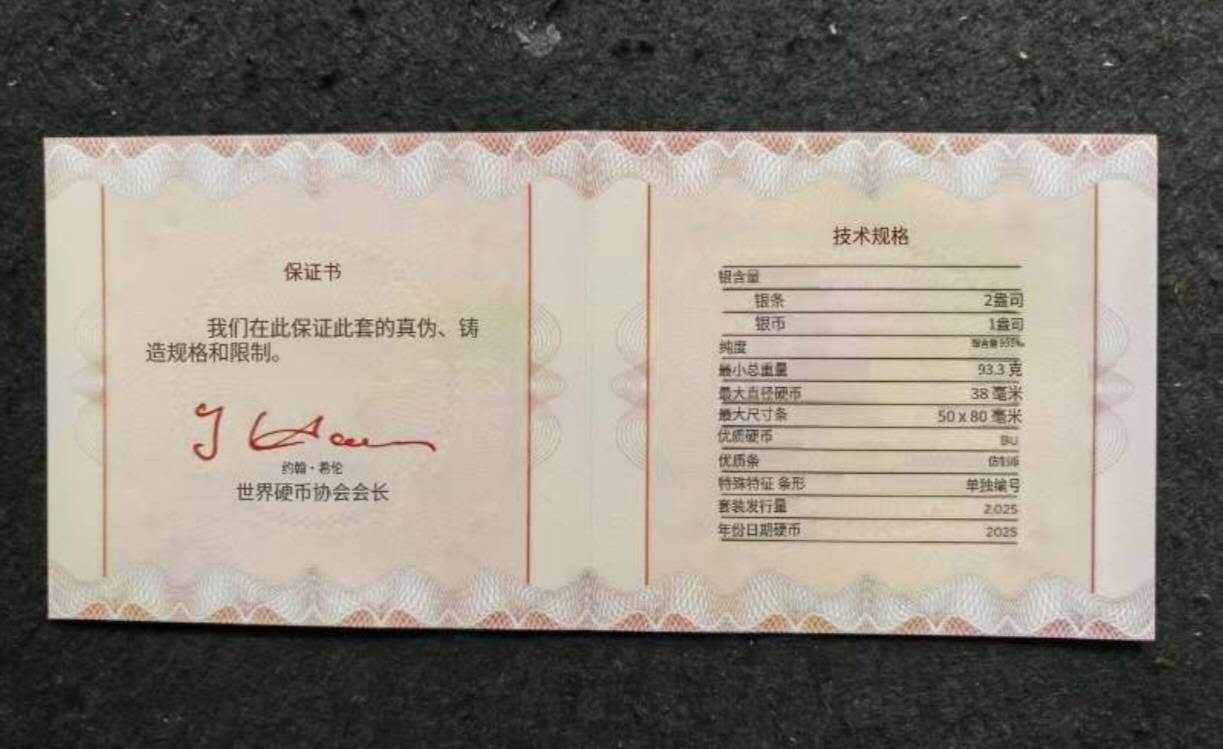 保证书
我们在此保证此套的真伪、铸
造规格和限制。
约翰·希伦
世界硬币协会会长
技术规格
银含量
银条 2盎司
银币 1盎司
纯度
最小总重量 93.3 克
最大直径硬币 38 毫米
最大尺寸条 50 x 80 毫米
优质硬币 BU
优质条
特殊特征 条形 单独编号
套装发行量 2.025
年份日期硬币 2025